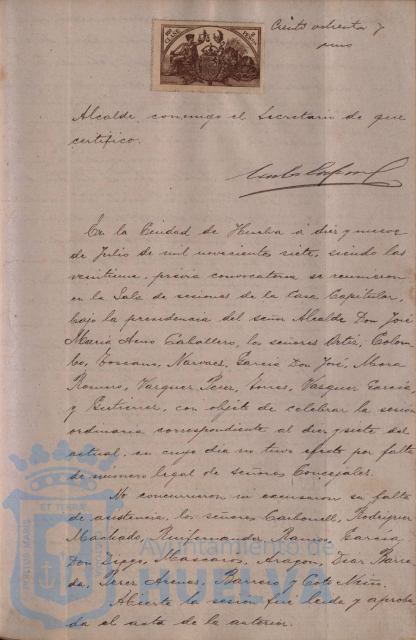 Ciento ochenta y
uno
Alcalde, conmigo el Secretario de que
certifico.
En la Ciudad de Huelva á diez y nueve
de Julio de mil novecientos siete, siendo las
veintiuna, prévia convocatoria se reunieron
en la Sala de sesiones de la Casa Capitular,
bajo la presidencia del señor Alcalde Don José
María Caballero, los señores Ortiz, Colom-
bo, Toscano, Narvaez, García Don José, Mora
Romero, Vazquez Perez, Torres, Vazquez García
y Gutierrez, con objeto de celebrar la sesion
ordinaria correspondiente al diez y siete del
actual, en cuyo dia no tuvo efecto por falta
de número legal de señores Concejales.
No concurrieron ni excusaron su falta
de asistencia, los señores Carbonell, Rodriguez
Machado, Ruifernandez, Ramos, García
Don Diego, Mascarós, Aragon, Diaz Barre-
da, Perez Arenas, Barroso y Coto Niño.
Abierta la sesión fué leida y aproba-
da el acta de la anterior.
Ayuntamiento de
HUELVA